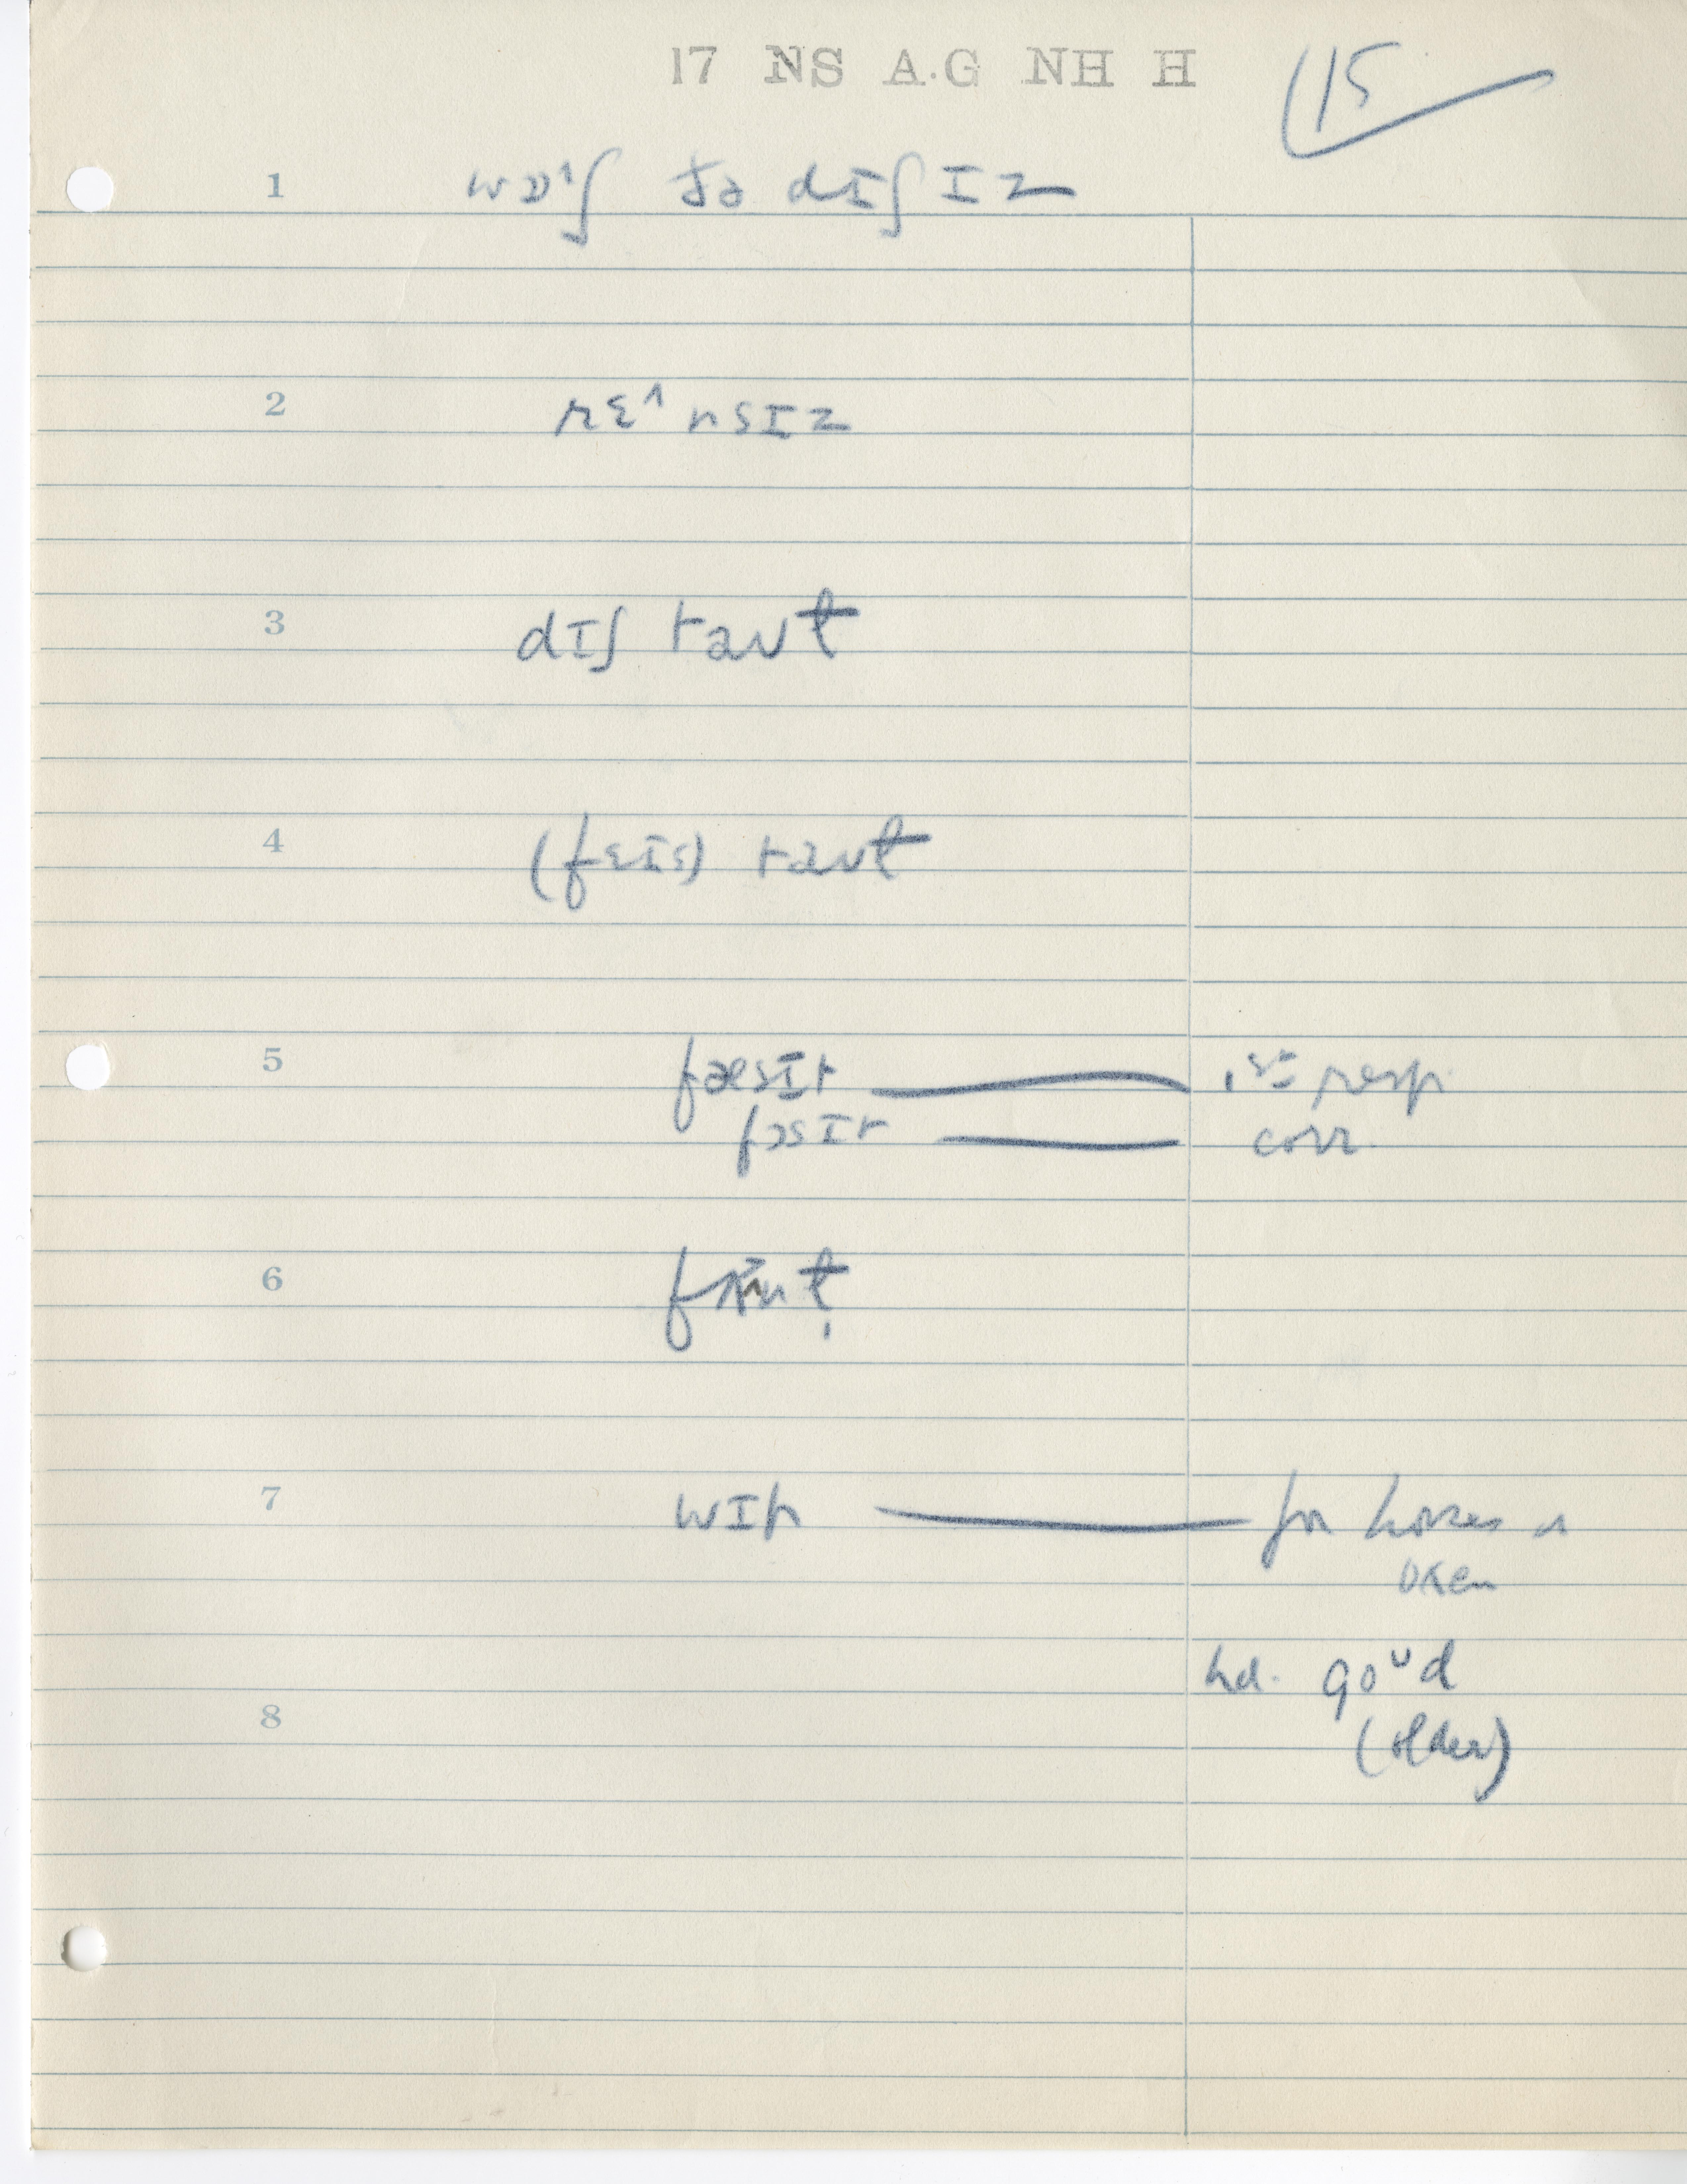 17 NS A.G NH H
15
1 wɒ˄ʃ ðə dɪʃɪz
2 rɛ˄nsɪz
3 dɪʃ taʊt
4 (fɛɪs) taʊt
5 fæsɪt 1st resp.
fɔsɪt corr.
6
7 wɪp for horses or
oxen
hd. goᴜd
(older)
8